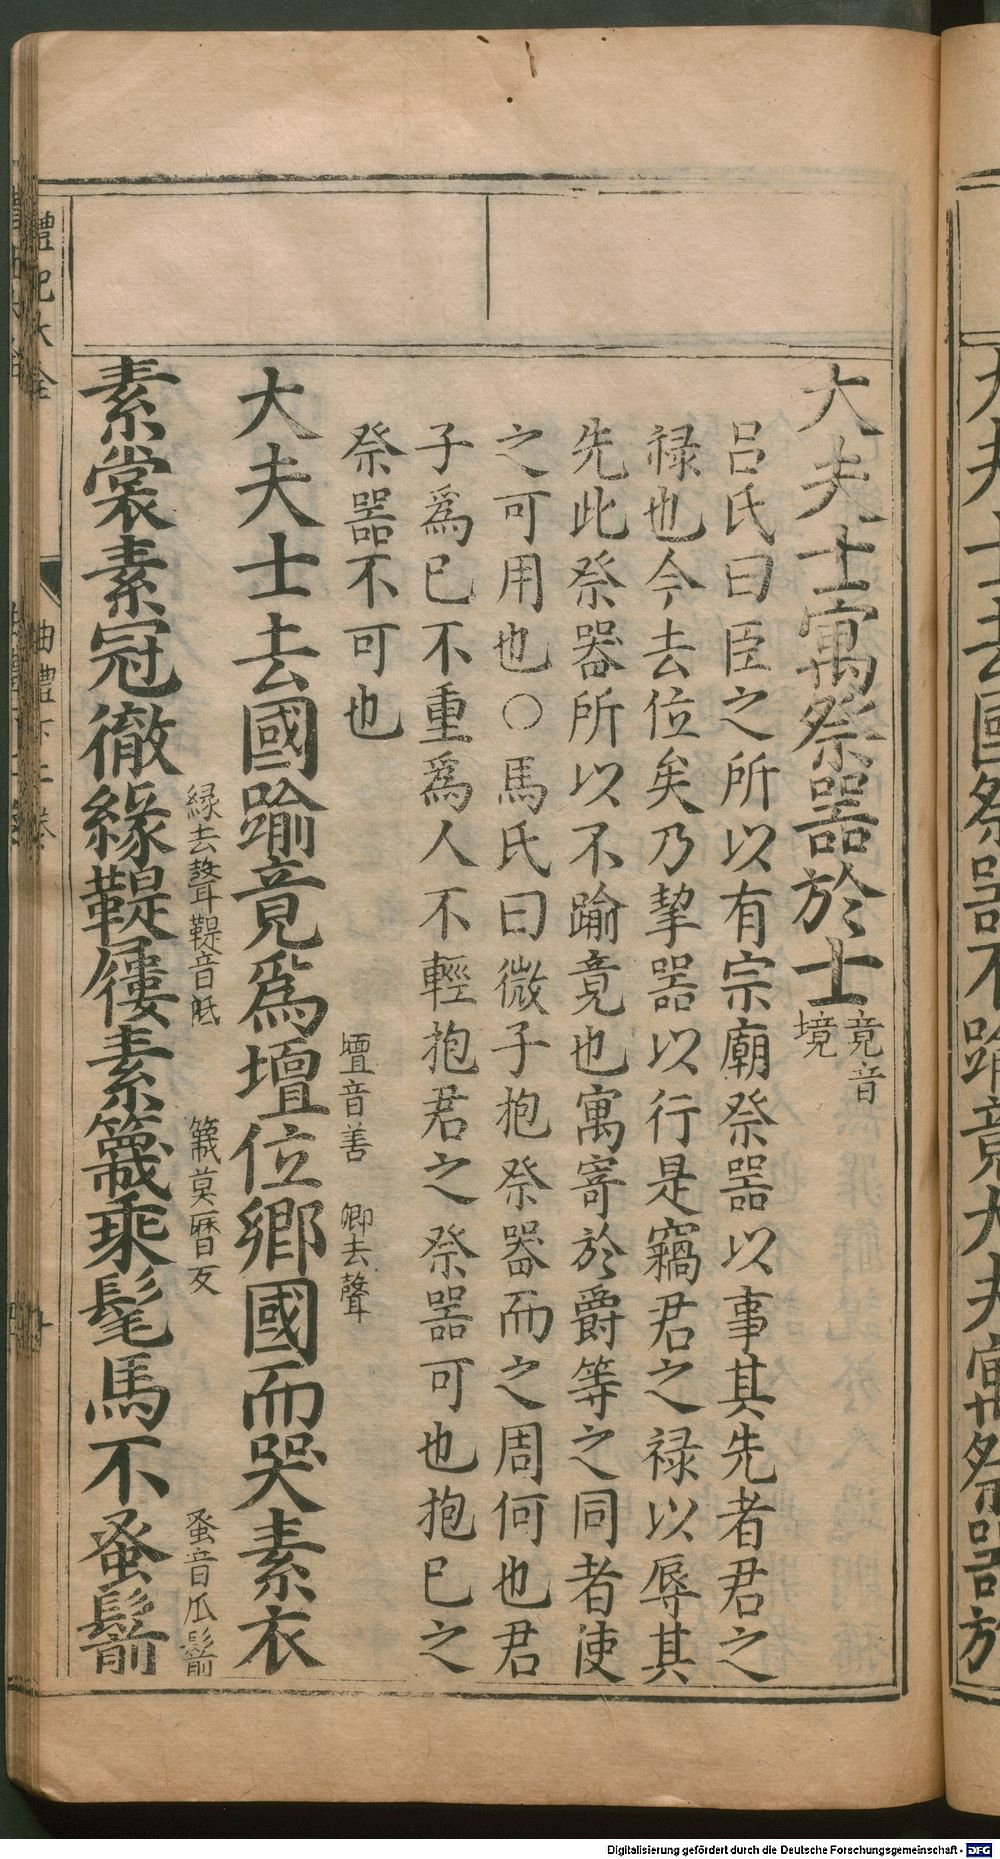 大夫士寓祭噐於士竟音境
吕氏曰臣之所以有宗廟祭噐以事其先者君之
禄也今去位矣乃挈噐以行是竊君之禄以辱其
先此祭器所以不踰竟也寓寄於爵等之同者使
之可用也○馬氏曰微子抱祭器而之周何也君
子爲已不重爲人不輕抱君之祭噐可也抱已之
祭噐不可也
壇音善 鄉去聲
大夫士去國踰竟爲壇位鄉國而哭素衣
緣去聲鞮音低 簚莫曆反 蚤音爪鬋
素裳素冠徹緣鞮屨素簚乘髦馬不蚤鬋
禮記大全
曲禮下二卷
Digitalisierung gefördert durch die Deutsche Forschungsgemeinschaft - DFG